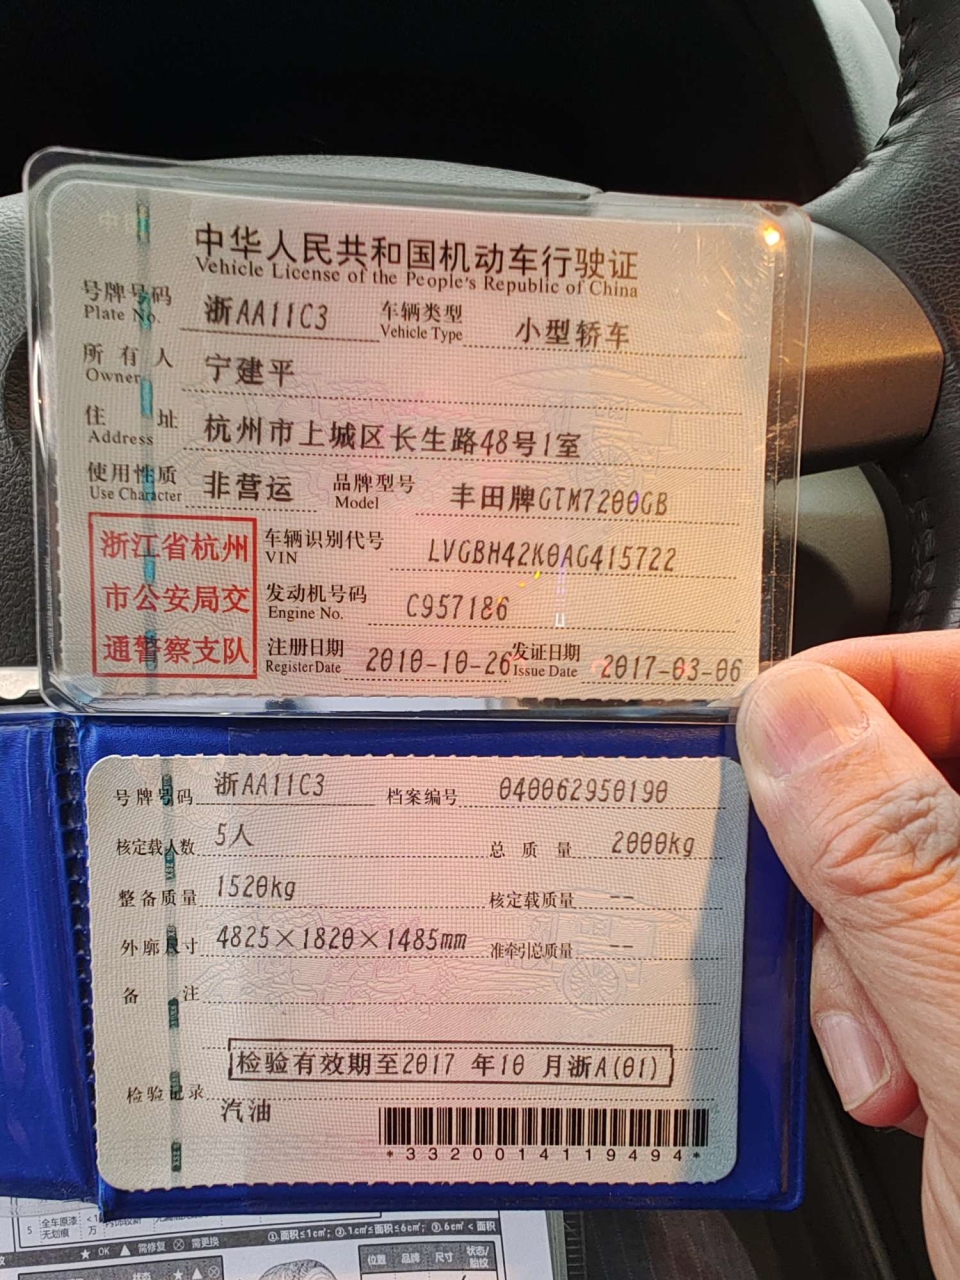 中华人民共和国机动车行驶证
Vehicle License of the People's Republic of China
号牌号码 浙AA11C3 车辆类型 小型轿车
Plate No. Vehicle Type
所有人 宁建平
Owner
住址 杭州市上城区长生路48号1室
Address
使用性质 非营运 品牌型号 丰田牌GTM7200GB
Use Character Model
浙江省杭州
市公安局交
通警察支队
车辆识别代号 LVGBH42K0AG415722
VIN
发动机号码 C957186
Engine No.
注册日期 2010-10-26 发证日期 2017-03-06
Register Date Issue Date
号牌号码 浙AA11C3 档案编号 040062950190
核定载人数 5人 总质量 2000kg
整备质量 1520kg 核定载质量 --
外廓尺寸 4825×1820×1485mm 准牵引总质量 --
备注
检验有效期至2017 年10 月浙A(01)
检验记录
汽油
*3320014119494*
5 全车原漆
无划痕
万
①.面积≤1cm²; ②.1cm²≤面积≤6cm²; ③.6cm²< 面积
★ OK ▲ 需修复 ⊗ 需更换
状态 ★ ▲ ⊗
位置 品牌 尺寸 状态/
胎纹